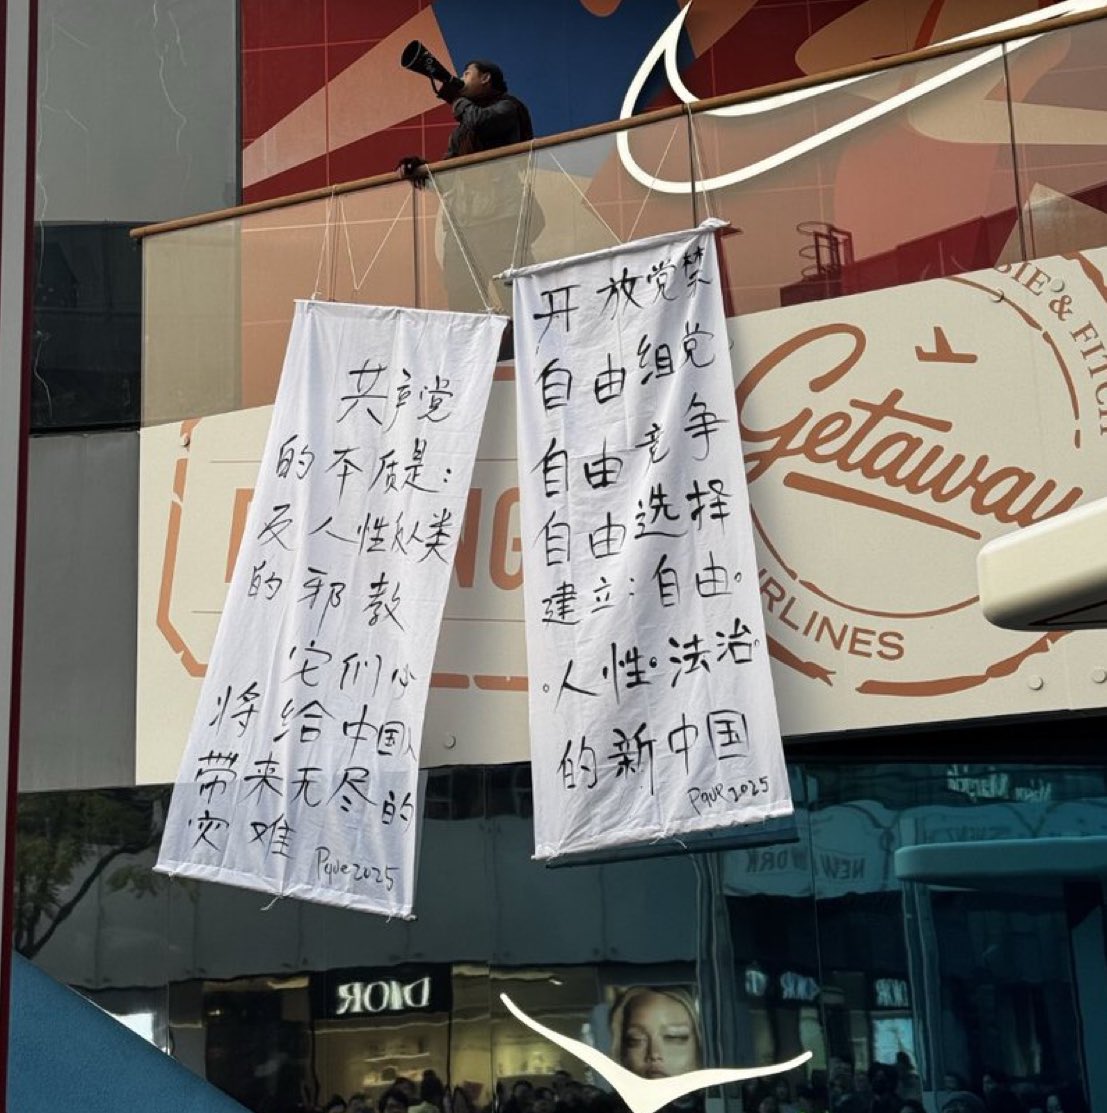 共产党
的本质是：
反人性反人类
的邪教
它们必
将给中国人
带来无尽的
灾难
Pque2025
开放党禁
自由组党
自由竞争
自由选择
建立：自由。
。人性。法治。
的新中国
Pque2025
Getaway
IE & FITCH
RLINES
NG
DIOR
NEW YORK